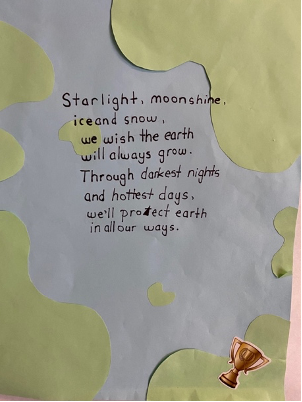 Starlight, moonshine,
ice and snow,
we wish the earth
will always grow.
Through darkest nights
and hottest days,
we'll protect earth
in all our ways.